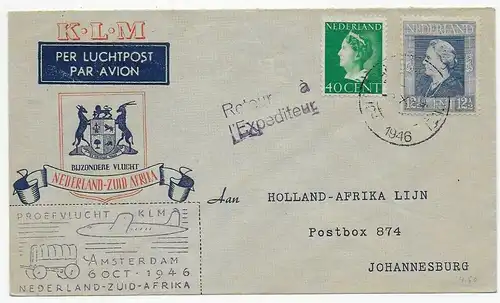 K·L·M
PER LUCHTPOST
PAR AVION
BIJZONDERE VLUCHT
NEDERLAND-ZUID AFRIKA
PROEFVLUCHT KLM
AMSTERDAM
6 OCT · 1946
NEDERLAND-ZUID-AFRIKA
Retour à
l'Expediteur
NEDERLAND
40 CENT
NEDERLAND
12½ 12½
1946
Aan HOLLAND-AFRIKA LIJN
Postbox 874
JOHANNESBURG